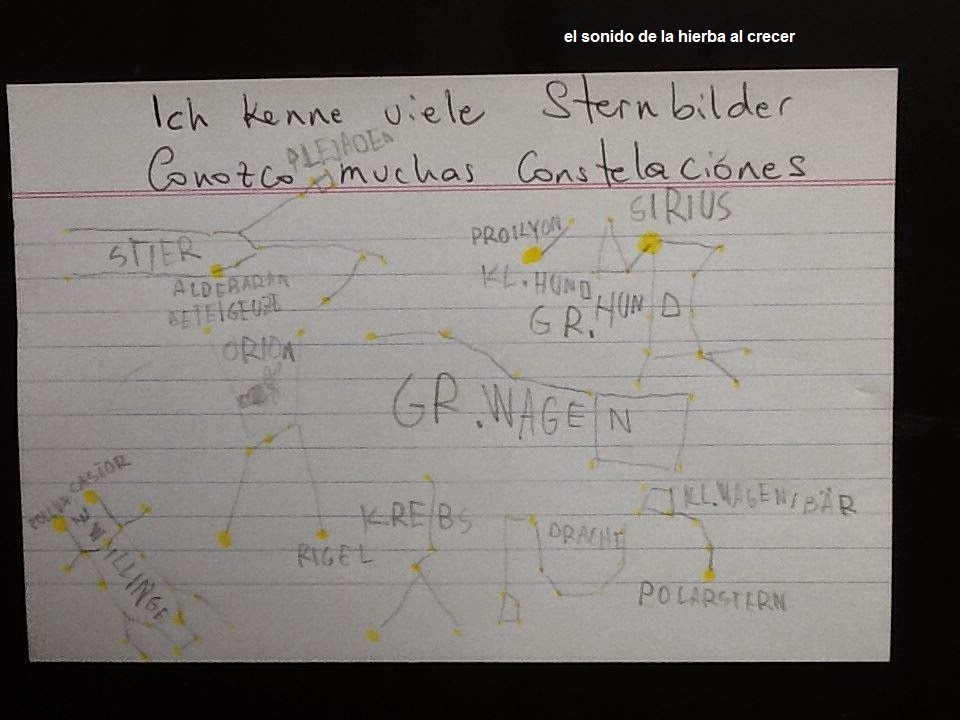 el sonido de la hierba al crecer
Ich kenne viele Sternbilder
PLEJADEN
Conozco muchas Constelaciónes
SIRIUS
STIER
PROILYON
KL. HUND
ALDEBARAN
BETEIGEUZE
GR. HUND
ORION
GR. WAGEN
CASTOR
ZWILLINGE
KREBS
KL. WAGEN/BÄR
DRACHE
RIGEL
POLARSTERN